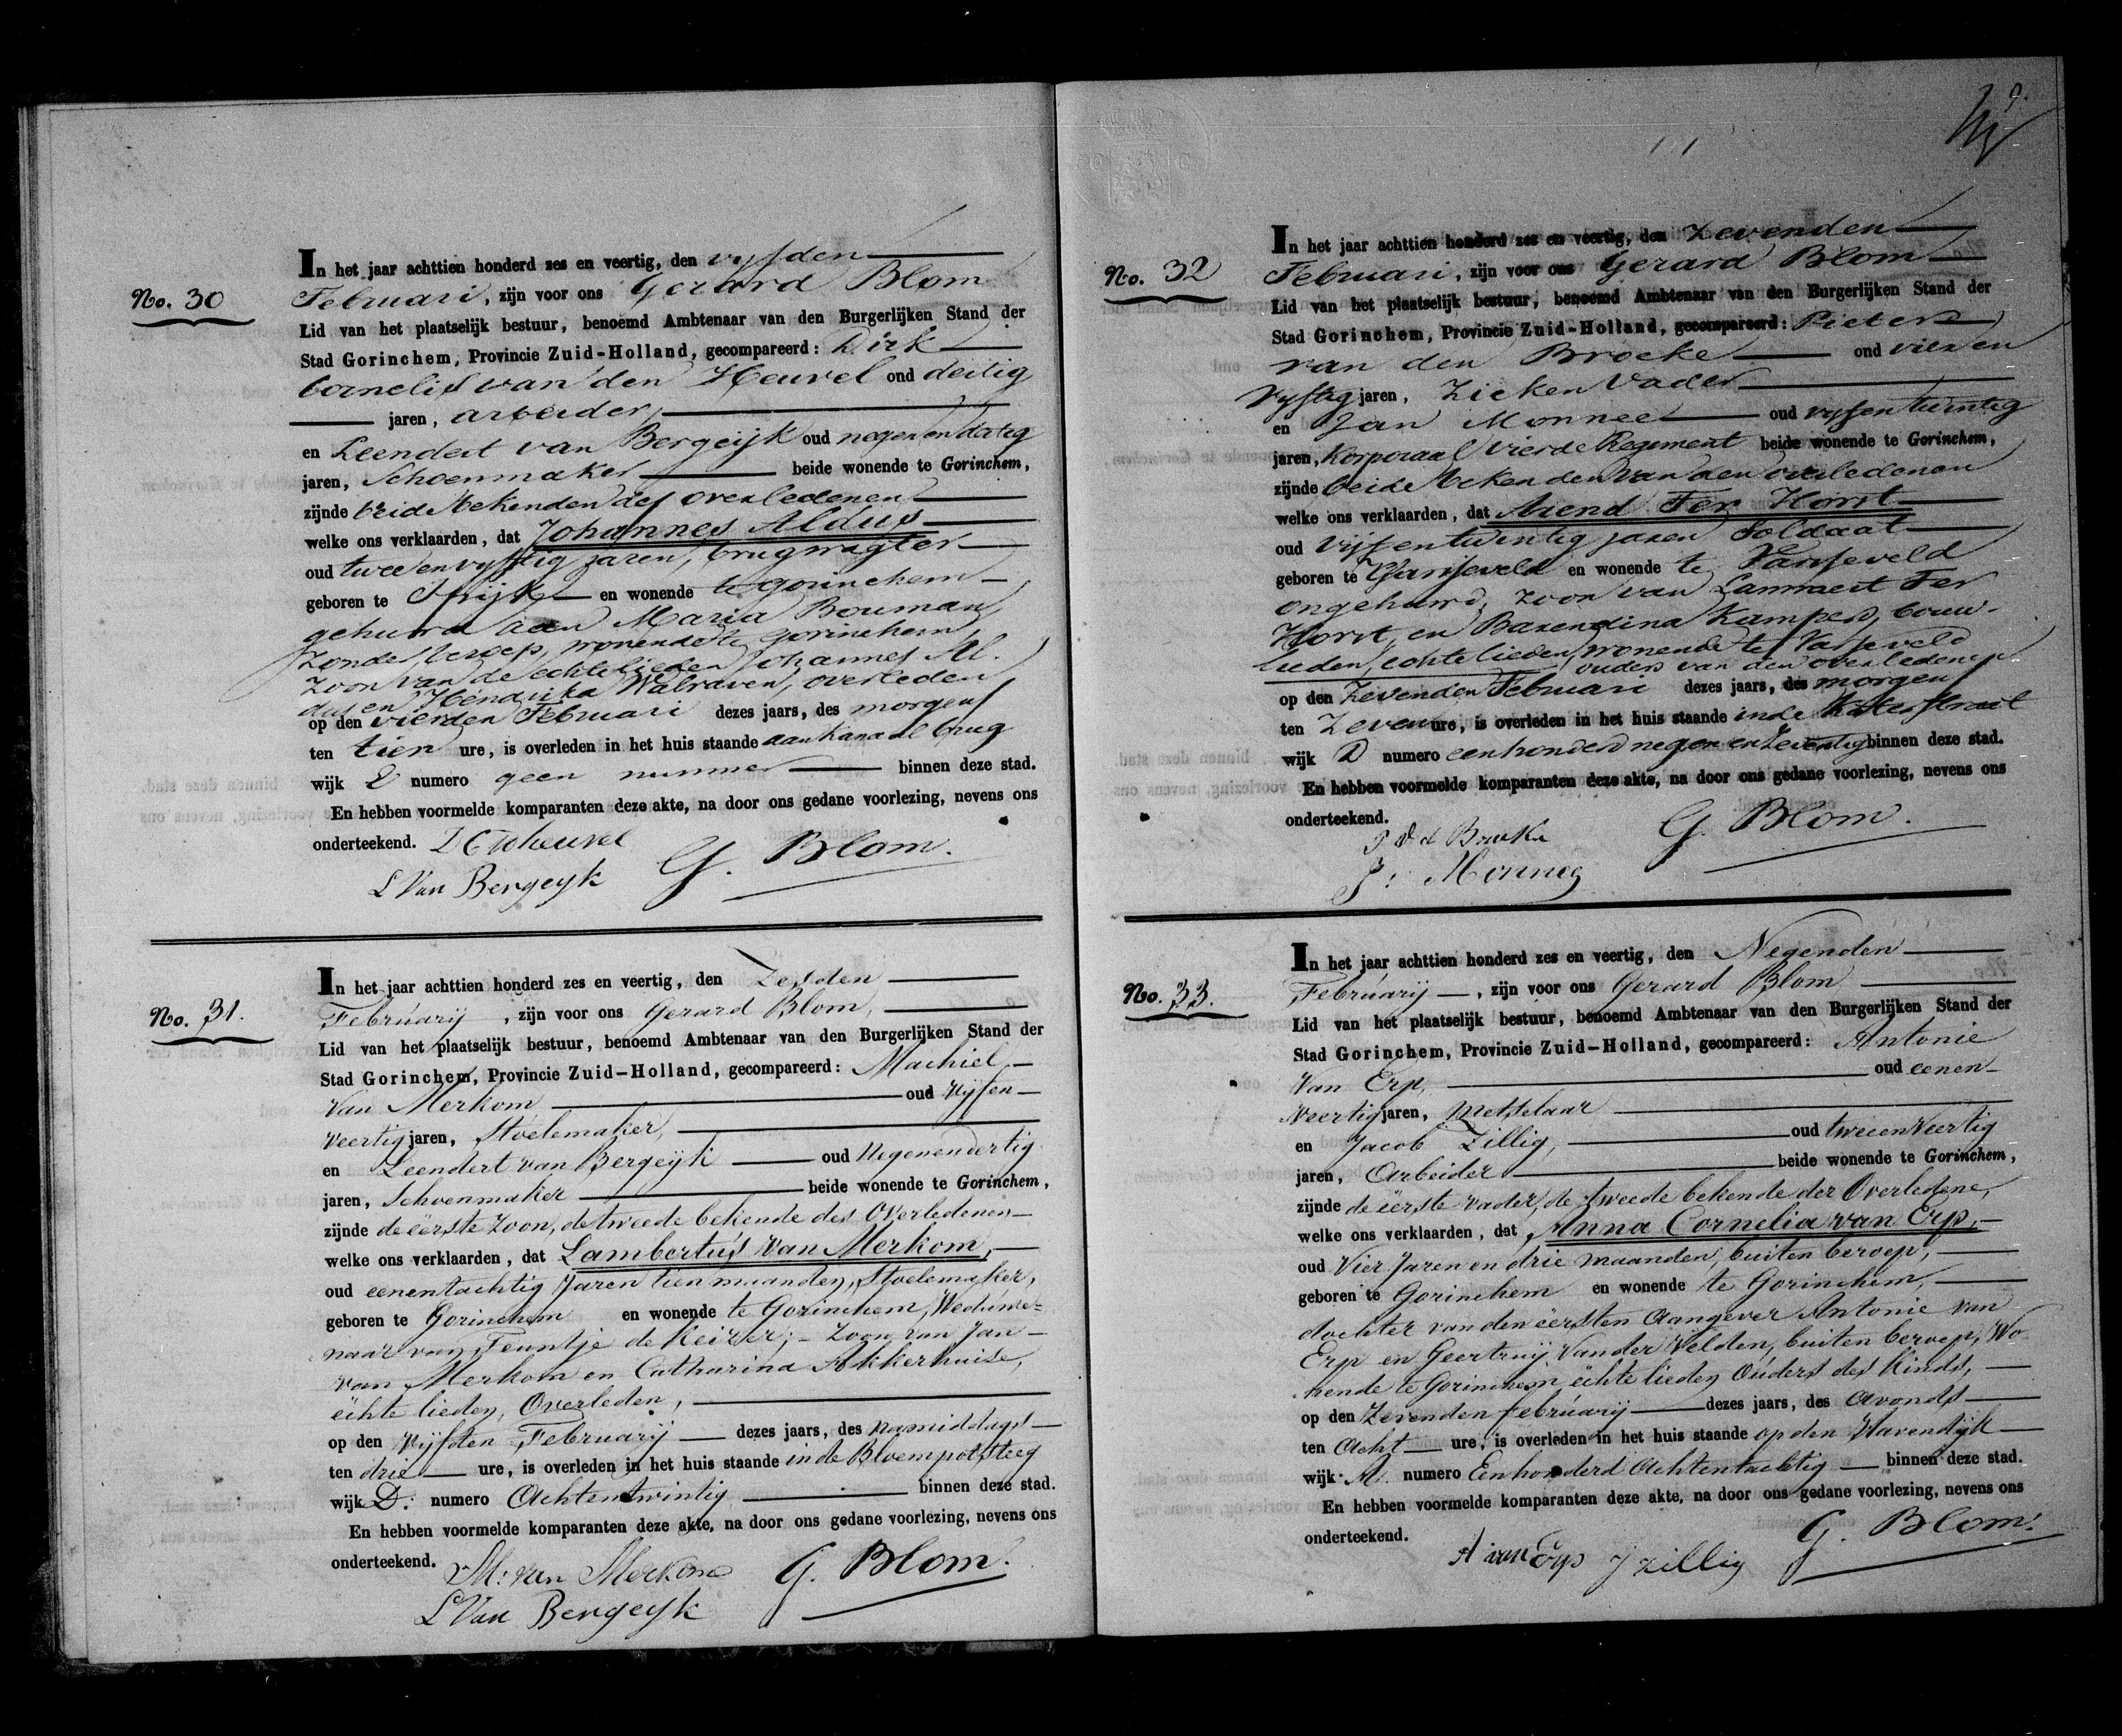 No. 30
In het jaar achttien honderd zes en veertig, den vyfden
Februari, zijn voor ons Gerard Blom
Lid van het plaatselijk bestuur, benoemd Ambtenaar van den Burgerlijken Stand der
Stad Gorinchem, Provincie Zuid-Holland, gecompareerd: Dirk
Cornelis van den Heuvel oud dertig
jaren, arbeider,
en Leendert van Bergeijk oud negen en dertig
jaren, Schoenmaker beide wonende te Gorinchem,
zijnde beide bekenden des overledenen
welke ons verklaarden, dat Johannes Aldus
oud twee en vyftig jaren, brugwagter
geboren te Strijk en wonende te Gorinchem
gehuwd aan Maria Bouman,
zonder beroep, wonende te Gorinchem,
Zoon van de echtelieden Johannes Al-
dus en Hendrika Walraven, overleden
op den vierden Februari dezes jaars, des morgens
ten tien ure, is overleden in het huis staande aan Kanaal brug
wijk E numero geen nummer binnen deze stad.
En hebben voormelde komparanten deze akte, na door ons gedane voorlezing, nevens ons
onderteekend. D C vd heuvel
L Van Bergeyk G. Blom.
No. 31.
In het jaar achttien honderd zes en veertig, den Zesden
Februarij, zijn voor ons Gerard Blom,
Lid van het plaatselijk bestuur, benoemd Ambtenaar van den Burgerlijken Stand der
Stad Gorinchem, Provincie Zuid-Holland, gecompareerd: Machiel
Van Merkom oud Vijfen-
veertig jaren, Stoelemaker,
en Leendert van Bergeijk oud Negenendertig
jaren, Schoenmaker beide wonende te Gorinchem,
zijnde de eerste Zoon, de tweede bekende des Overledenen
welke ons verklaarden, dat Lambertus Van Merkom,
oud eenentachtig Jaren tien maanden, Stoelemaker,
geboren te Gorinchem en wonende te Gorinchem, Weduwe-
naar van Teuntje de Keizer; Zoon van Jan
van Merkom en Catharina Akkerhuise,
echte lieden, Overleden,
op den Vijfden Februarij dezes jaars, des namiddags
ten drie ure, is overleden in het huis staande in de Bloempotsteeg
wijk D. numero Achtentwintig binnen deze stad.
En hebben voormelde komparanten deze akte, na door ons gedane voorlezing, nevens ons
onderteekend. M: van Merkom G. Blom.
L Van Bergeyk
No. 32
In het jaar achttien honderd zes en veertig, den Zevenden
Februari, zijn voor ons Gerard Blom
Lid van het plaatselijk bestuur, benoemd Ambtenaar van den Burgerlijken Stand der
Stad Gorinchem, Provincie Zuid-Holland, gecompareerd: Pieter
van den Broeke oud vier en
vyftig jaren, Zieken Vader
en Jan Monnee oud vyf en twintig
jaren, Korporaal Vierde Regiment beide wonende te Gorinchem,
zijnde beide bekenden van den overledenen
welke ons verklaarden, dat Arend Ter Horst
oud vijf en twintig jaren Soldaat
geboren te Varsseveld en wonende te Varsseveld
ongehuwd, zoon van Lammert Ter
Horst, en Barendina Kamper, bouw-
lieden, echtelieden, wonende te Varsseveld
ouders van den overledene
op den Zevenden Februari dezes jaars, des morgens
ten Zeven ure, is overleden in het huis staande in de
wijk D numero een honderd negen en zeventig binnen deze stad.
En hebben voormelde komparanten deze akte, na door ons gedane voorlezing, nevens ons
onderteekend.
P v d Broeke G. Blom.
J: Monneé
No. 33.
In het jaar achttien honderd zes en veertig, den Negenden
Februarij, zijn voor ons Gerard Blom
Lid van het plaatselijk bestuur, benoemd Ambtenaar van den Burgerlijken Stand der
Stad Gorinchem, Provincie Zuid-Holland, gecompareerd: Antonie
Van Erp, oud eenen-
Veertig jaren, Metselaar
en Jacob Zillig, oud tweeenveertig
jaren, Arbeider beide wonende te Gorinchem,
zijnde de eerste vader, de tweede bekende der Overledene,
welke ons verklaarden, dat Anna Cornelia van Erp,
oud Vier Jaren en drie maanden, buiten beroep,
geboren te Gorinchem en wonende te Gorinchem,
dochter van den eersten Aangever Antonie van
Erp en Geertruij Vander Velden, buiten beroep, Wo-
nende te Gorinchem echte lieden Ouders des Kinds,
op den Zevenden februarij dezes jaars, des avonds
ten Acht ure, is overleden in het huis staande op den Havendijk
wijk A. numero Eenhonderd Achtentachtig binnen deze stad.
En hebben voormelde komparanten deze akte, na door ons gedane voorlezing, nevens ons
onderteekend. G. Blom.
A van Erp J zillig